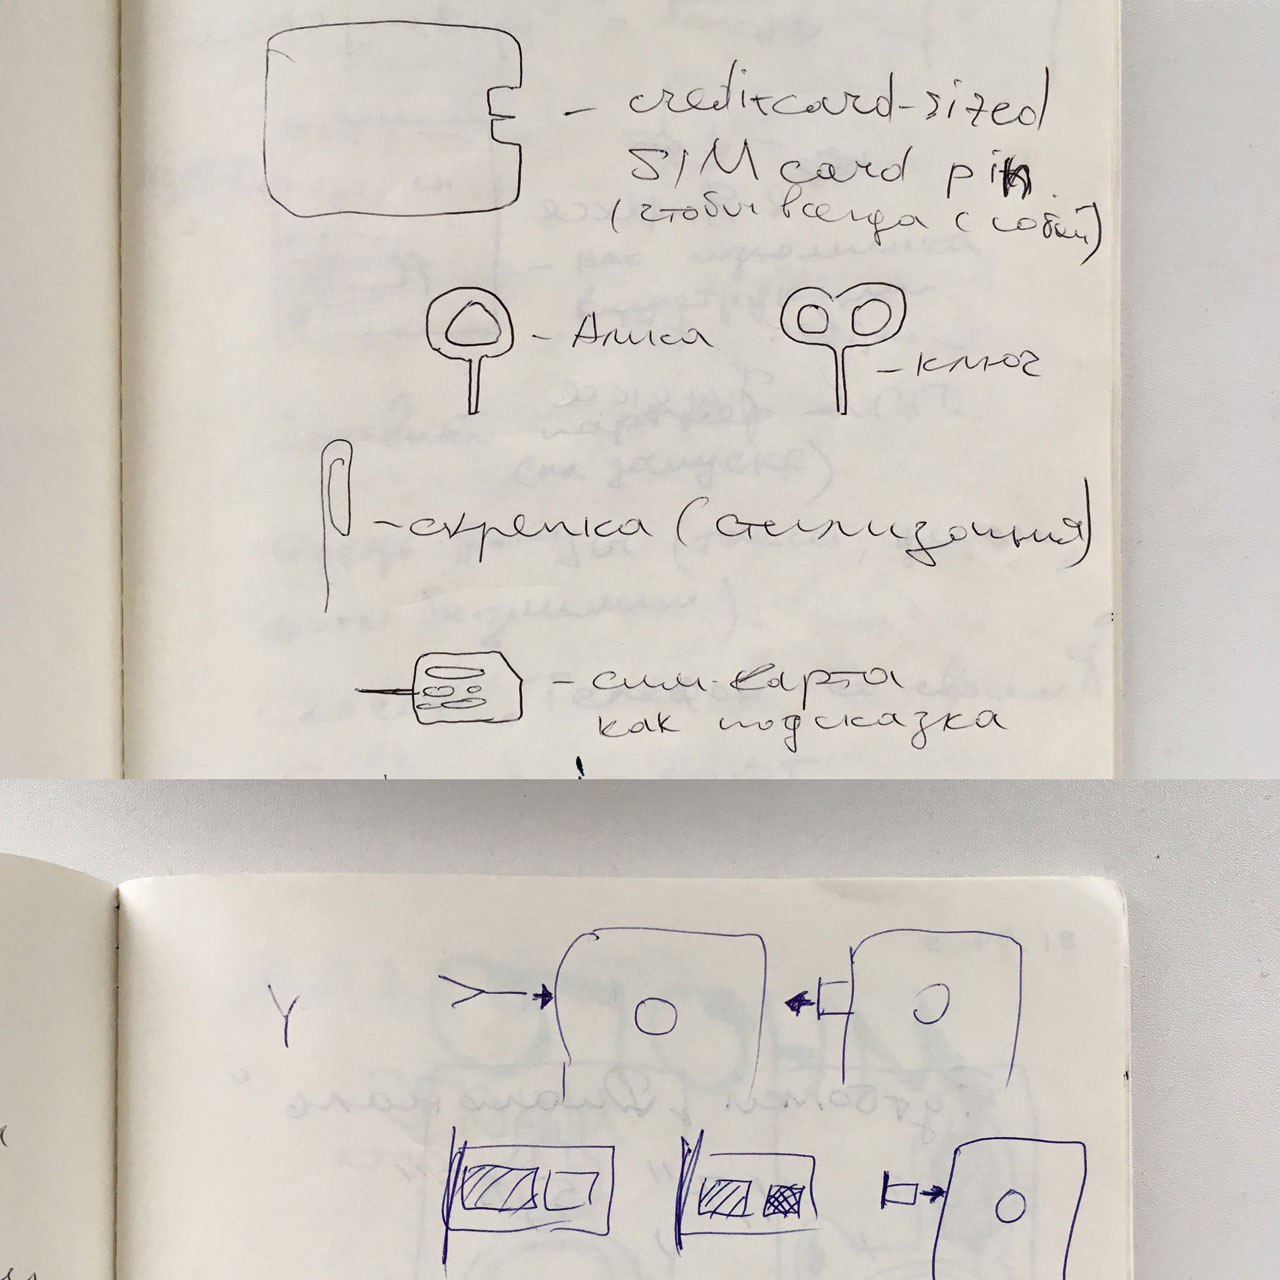 – creditcard-sized
SIM card pin
(чтобы всегда с собой)
– Алиса
– ключ
– скрепка (стилизация)
– сим-карта
как подсказка
Y